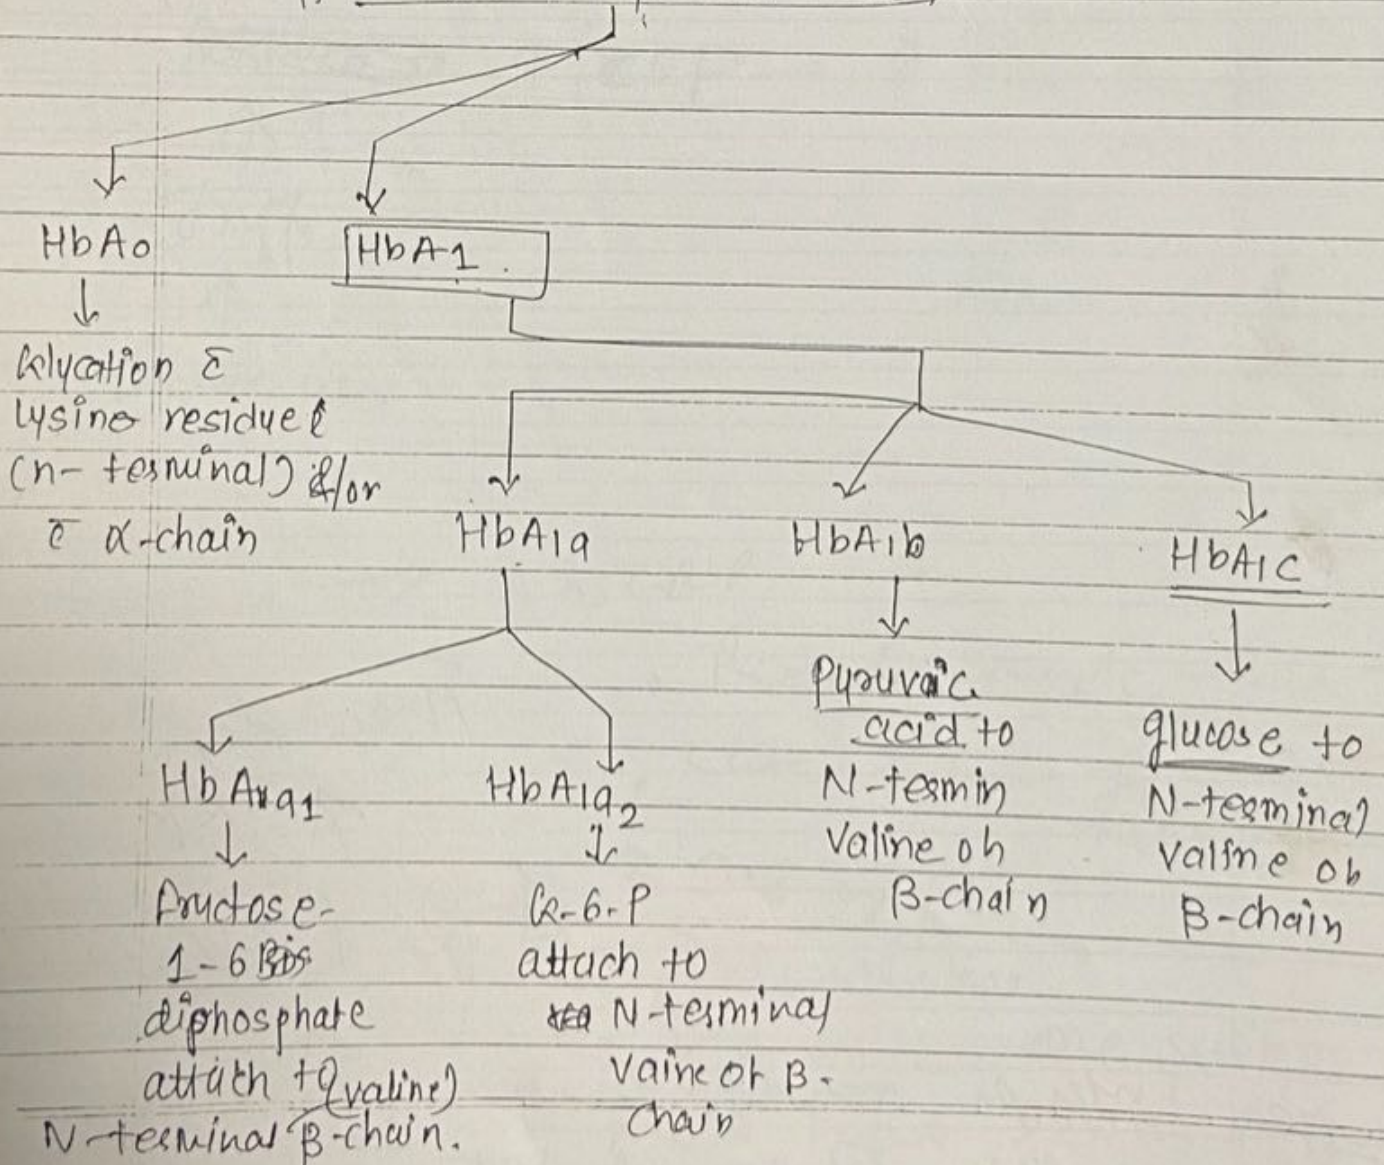 HbA0
HbA1
Glycation c̄
lysine residue &
(n-terminal) &/or
c̄ α-chain
HbA1a
HbA1b
HbA1c
HbA1a1
HbA1a2
Fructose-
1-6 Bis
diphosphate
attach to (valine)
N-terminal β-chain.
G-6-P
attach to
N-terminal
Vaine of β-
Chain
Pyruvic
acid to
N-termin
Valine of
β-chain
glucose to
N-terminal
valine of
β-chain